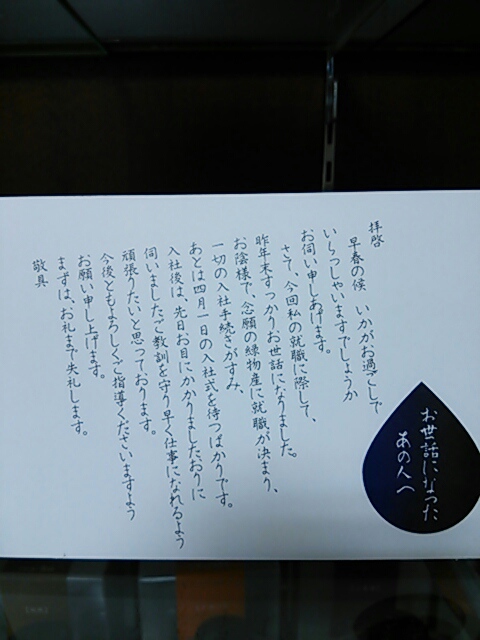 拝啓
早春の候 いかがお過ごしで
いらっしゃいますでしょうか
お伺い申しあげます。
さて、今回私の就職に際して、
昨年末すっかりお世話になりました。
お陰様で、念願の緑物産に就職が決まり、
一切の入社手続きがすみ、
あとは四月一日の入社式を待つばかりです。
入社後は、先日お目にかかりましたおりに
伺いましたご教訓を守り早く仕事になれるよう
頑張りたいと思っております。
今後ともよろしくご指導くださいますよう
お願い申し上げます。
まずは、お礼まで失礼します。
敬具
お世話になった
あの人へ